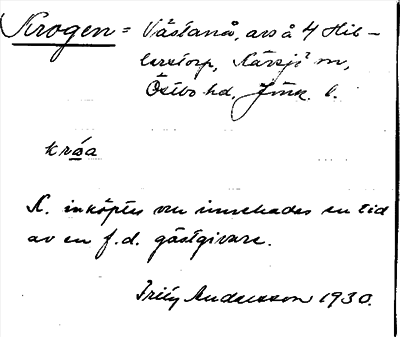 Krogen = Västanå, avs å 4 Hib-
lerstorp, Kärsjö sn,
Östbo hd. Jönk. l.
kråa
K. inköptes och innehades en tid
av en f.d. gästgivare.
Andersson 1930.